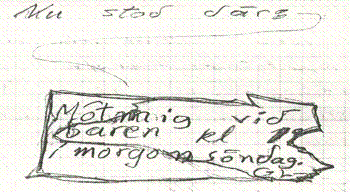 Nu stod där
Möt mig vid
baren kl
i morgon söndag.
GL